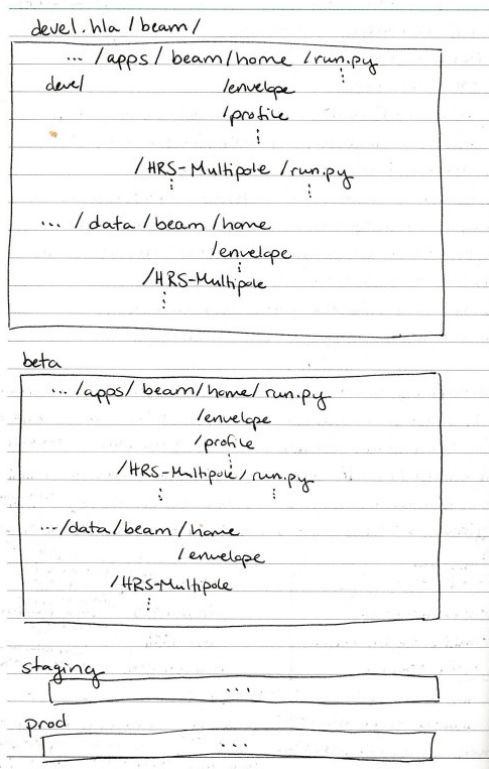 devel.hla/beam/
... /apps/beam/home/run.py
devel /envelope
/profile
/HRS-Multipole/run.py
... /data/beam/home
/envelope
/HRS-Multipole
beta
... /apps/beam/home/run.py
/envelope
/profile
/HRS-Multipole/run.py
.../data/beam/home
/envelope
/HRS-Multipole
staging
...
prod
...